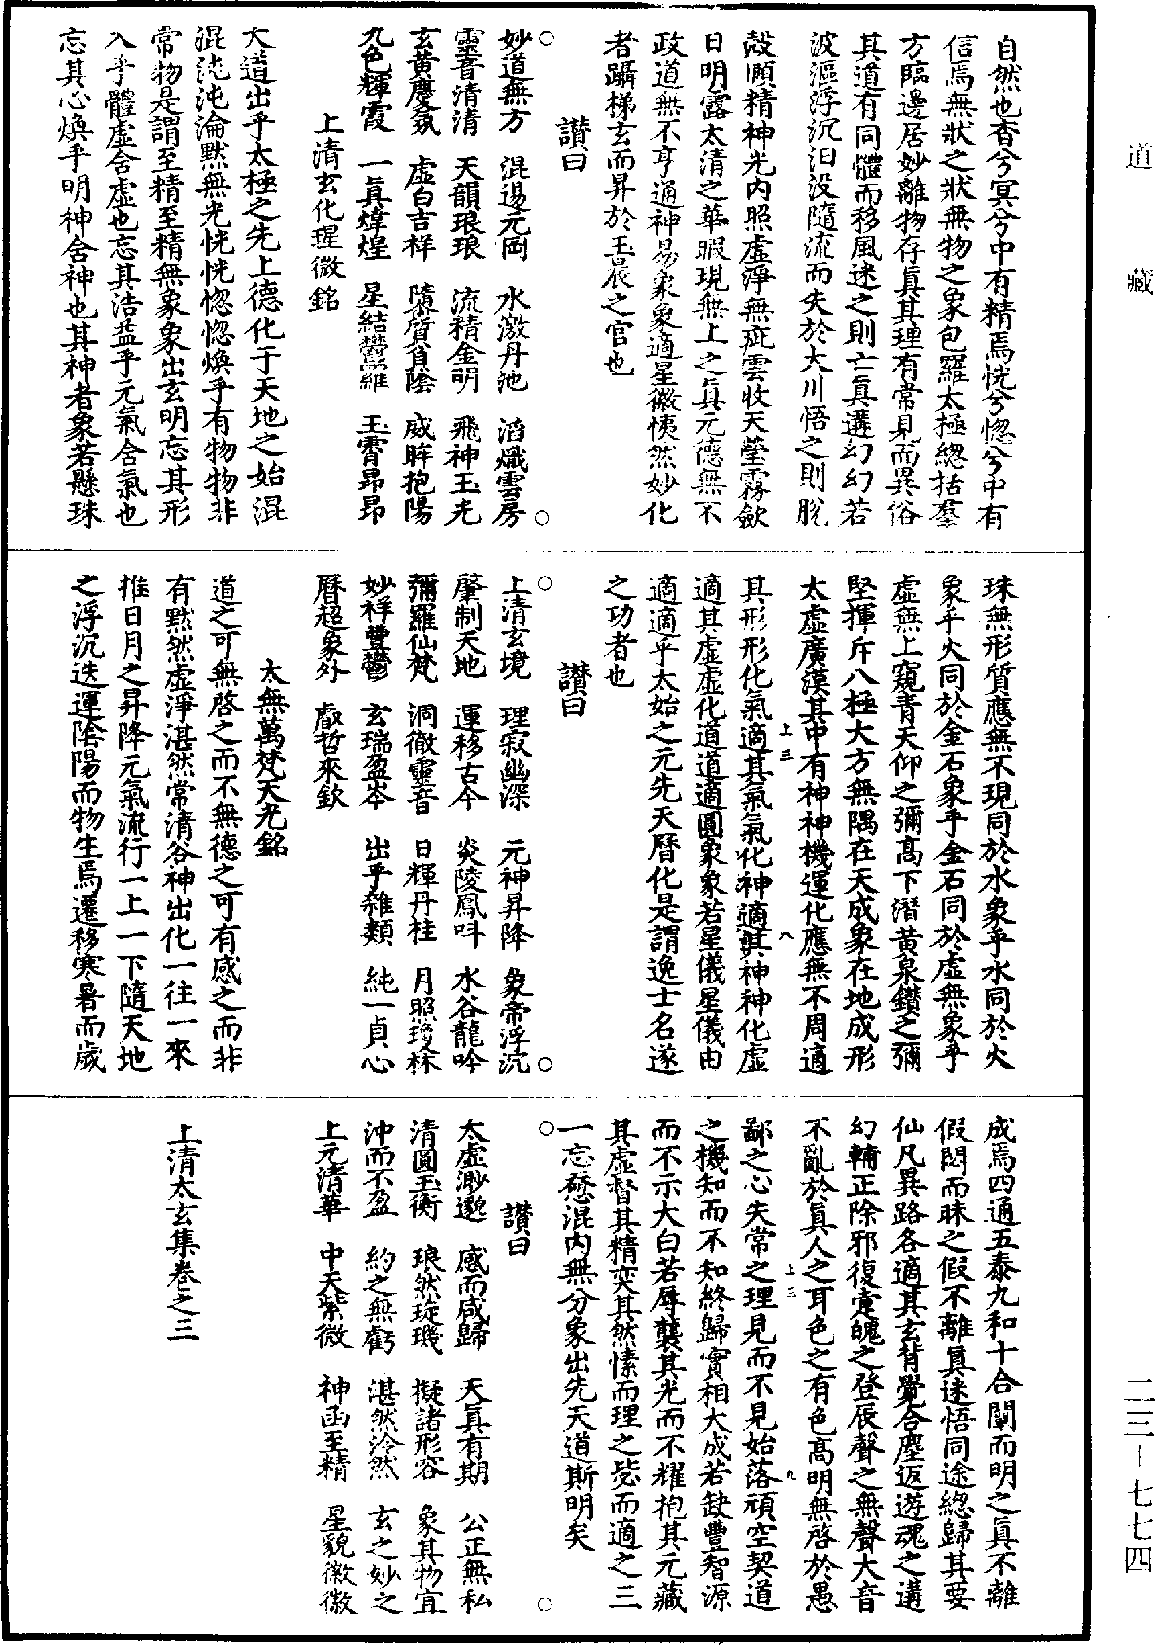 自然也杳兮冥兮中有精焉恍兮惚兮中有
信焉無狀之狀無物之象包羅太極總括羣
方臨邊居妙離物存眞其理有常見而異俗
其道有同體而移風迷之則亡眞遘幻幻若
波漚浮沉汩没隨流而失於大川悟之則脫
殻頤精神光内照虛淨無疵雲收天瑩霧斂
日明露太清之華暇現無上之眞元德無不
政道無不亨通神易象象適星徽恞然妙化
者躡梯玄而昇於玉晨之官也
讃曰
○妙道無方　混邊元岡　水激丹池　滔熾雲房○
靈音清清　天韻琅琅　流精金明　飛神玉光
玄黄慶氛　虚白吉祥　隋質負陰　威眸抱陽
九色輝霞　一眞煒煌　星結鬱羅　玉霄昂昂
上清玄化瑆微銘
大道出乎太極之先上德化于天地之始混
混沌沌淪黙無光恍恍惚惚煥乎有物物非
常物是謂至精至精無象象出玄明忘其形
入乎體虛舍虛也忘其洁益乎元氣舍氣也
忘其心煥乎明神舍神也其神者象若懸珠
珠無形質應無不現同於水象乎水同於火
象乎火同於金石象乎金石同於虛無象乎
虛無上窺青天仰之彌高下潛黄泉鑽之彌
堅揮斥八極大方無隅在天成象在地成形
太虛廣漠其中有神神機運化應無不周適
上三　八
其形形化氣適其氣氣化神適其神神化虛
適其虛虛化道道適圓象象若星儀星儀由
適適乎太始之元先天曆化是謂逸士名遂
之功者也
讃曰
○上清玄境　理寂幽深　元神昇降　象帝浮沉○
肇制天地　運移古今　炎陵鳳吽　水谷龍吟
彌羅仙梵　洞徹靈音　日輝丹桂　月照瓊林
妙祥豐鬱　玄瑞盈岑　出乎雜類　純一貞心
曆超象外　叡哲來欽
太無萬梵天光銘
道之可無啓之而不無德之可有感之而非
有黙然虛淨湛然常清谷神出化一往一來
推日月之昇降元氣流行一上一下隨天地
之浮沉迭運陰陽而物生焉遷移寒暑而歲
成焉四通五泰九和十合闡而明之眞不離
假悶而昧之假不離眞迷悟同途總歸其要
仙凡異路各適其玄背覺合塵返遊魂之遘
幻輔正除邪復業魄之登辰聲之無聲大音
不亂於眞人之耳色之有色髙明無啓於愚
上三　九
鄙之心失常之理見而不見始落頑空契道
之機知而不知終歸實相大成若缺豐智源
而不示大白若辱襲其光而不耀抱其元藏
其虛督其精奕其然愫而理之毙而適之三
一忘礙混内無分象出先天道斯明矣
讃曰
○太虛渺邈　感而咸歸　天眞有期　公正無私○
清圓玉衡　琅然琁璣　擬諸形容　象其物宜
沖而不盈　約之無虧　湛然泠然　玄之妙之
上元清華　中天紫微　神函至精　星貌徽徽
上清太玄集卷之三
道藏
二三－七七四